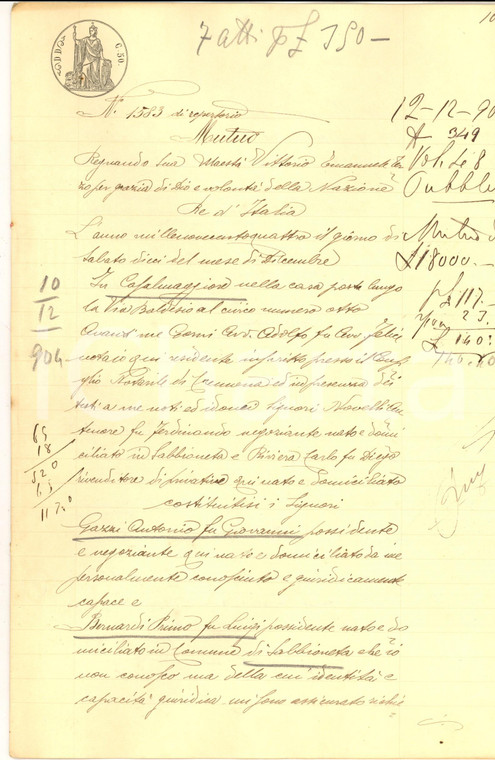 7 atti p £ 350 —
C. 50.
N. 1583 di repertorio
Mutuo
Regnando Sua Maestà Vittorio Emanuele Ter
zo per grazia di Dio e volontà della Nazione
Re d'Italia
L'anno millenovecentoquattro il giorno di
sabato dieci del mese di Dicembre
In Casalmaggiore nella casa posta lungo
la Via Baldesio al civico numero otto
Avanti me Avv. Adolfo fu Avv. Felice
notaio qui residente inscritto presso il Consi
glio Notarile di Cremona ed in presenza dei
testi a me noti ed idonei signori Novelli An
tenore fu Ferdinando negoziante nato e domi
ciliato in Sabbioneta e Riviera Carlo fu Diego
rivenditore di privative qui nato e domiciliato
costituitisi i Signori
Gozzi Antonio fu Giovanni possidente
e negoziante qui nato e domiciliato da me
personalmente conosciuto e giuridicamente
capace e
Bernardi Primo fu Luigi possidente nato e do
miciliato in Comune di Sabbioneta che io
non conosco ma della cui identità e
capacità giuridica mi sono assicurato
12-12-90
A 349
Vol. 68
Pubbl
Mutuo
£ 18000.—
117.—
23.
£ 140.
140.40
10
12
904
65
18
520
65
1170